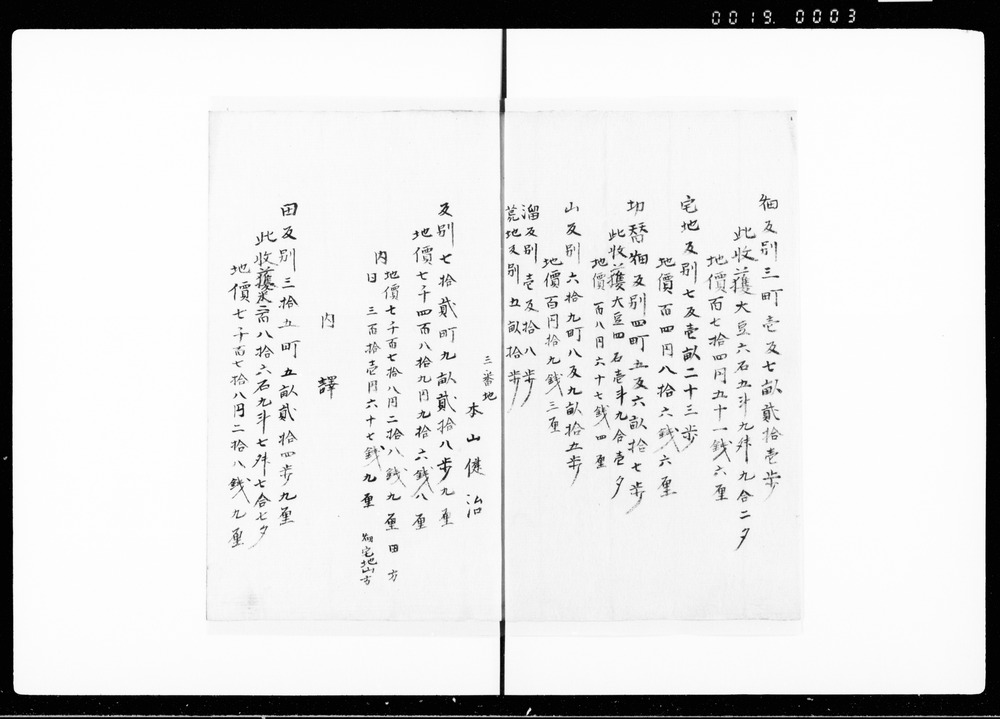 0019.0003
畑反別三町壱反七畝貳拾壱歩
此收獲大豆六石五斗九舛九合二夕
地價百七拾四円五十一銭六厘
宅地反別七反壱畝二十三歩
地價百四円八拾六銭六厘
切替畑反別四町五反六畝拾七歩
此收獲大豆四石壱斗九合壱夕
地價百八円六十七銭四厘
山反別六拾九町八反九畝拾五歩
地價百円拾九銭三厘
溜反別壱反拾八歩
荒地反別五畝拾歩
三番地
本山健治
反別七拾貳町九畝貳拾八歩九厘
地價七千四百八拾九円九拾六銭八厘
内
地價七千百七拾八円二拾八銭九厘田方
〃三百拾壱円六十七銭九厘畑宅地山方
内譯
田反別三拾五町五畝貳拾四歩九厘
此收獲米二百八拾六石九斗七舛七合七夕
地價七千百七拾八円二拾八銭九厘